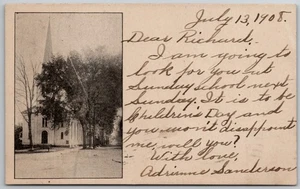 July 13, 1908.
Dear Richard:
I am going to
look for you but
Sunday School next
Sunday. It is to be
Children's Day and
you won't disappoint
me, will you?
With love,
Adrienne Sanderson